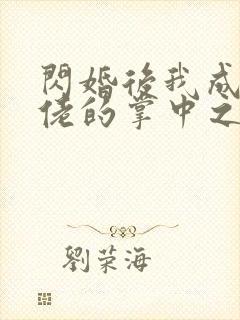 閃婚後我成
佬的掌中之
劉荣海